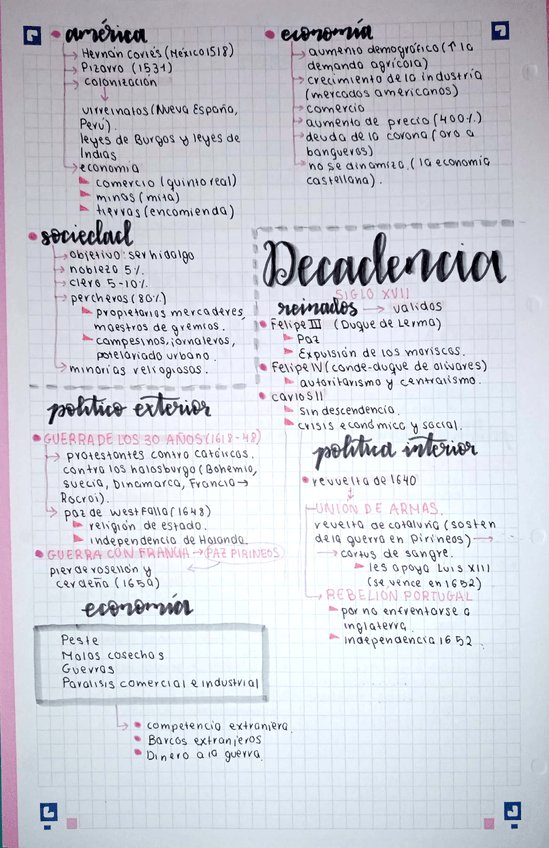 américa
Hernán Cortés (México 1518)
Pizarro (1531)
colonización
virreinatos (Nueva España,
Perú).
leyes de Burgos y leyes de
Indias
economía
comercio (quinto real)
minas (mita)
tierras (encomienda)
economía
aumento demográfico (↑ la
demanda agrícola)
crecimiento de la industria
(mercados americanos)
comercio
aumento de precio (400%)
deuda de la corona (oro a
banqueros)
no se dinamiza (la economía
castellana).
sociedad
objetivo: ser hidalgo
nobleza 5%.
clero 5-10%.
pecheros (80%)
propietarios mercaderes,
maestros de gremios.
campesinos, jornaleros,
potelariado urbano.
minorías religiosas.
Decadencia
SIGLO XVII
reinados → validos
Felipe III (Duque de Lerma)
Paz
Expulsión de los moriscos.
Felipe IV (conde-duque de olivares)
autoritarismo y centralismo.
carlos II
sin descendencia.
crisis económica y social.
político exterior
GUERRA DE LOS 30 AÑOS (1618-48)
protestantes contra católicos.
contra los habsburgo (Bohemia,
suecia, Dinamarca, Francia →
Rocroi).
paz de Westfalia (1648)
religión de estado.
independencia de Holanda.
GUERRA CON FRANCIA → PAZ PIRINEOS
pierde rosellón y
cerdeña (1659)
política interior
revuelta de 1640
UNIÓN DE ARMAS.
revuelta de cataluña (sosten
de la guerra en Pirineos) →
cortus de sangre.
les apoya Luis XIII
(se vence en 1652)
REBELIÓN PORTUGAL
por no enfrentarse a
inglaterra.
independencia 1652.
economía
Peste
Malas cosechas
Guerras
Paralisis comercial e industrial
competencia extranjera.
Barcos extranjeros
Dinero a la guerra.